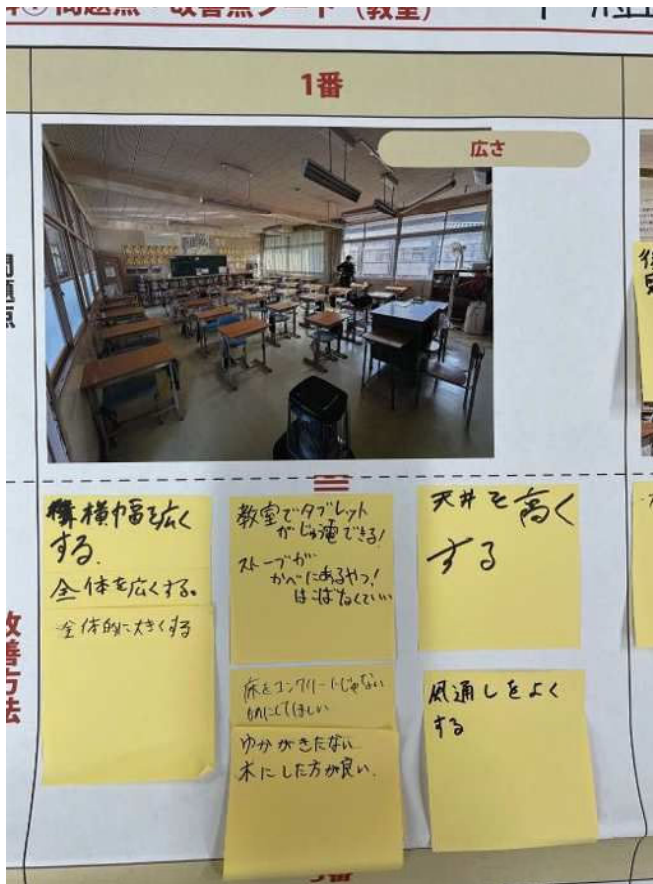 問題点・改善点シート（教室）
1番
広さ
問題点
改善方法
横幅を広く
する.
全体を広くする。
全体的に大きくする
教室でタブレット
がじゅう電できる!
ストーブが
かべにあるやつ!
はこばなくていい
床をコンクリートじゃない
のにしてほしい
ゆかがきたない
木にした方が良い.
天井を高く
する
風通しをよく
する